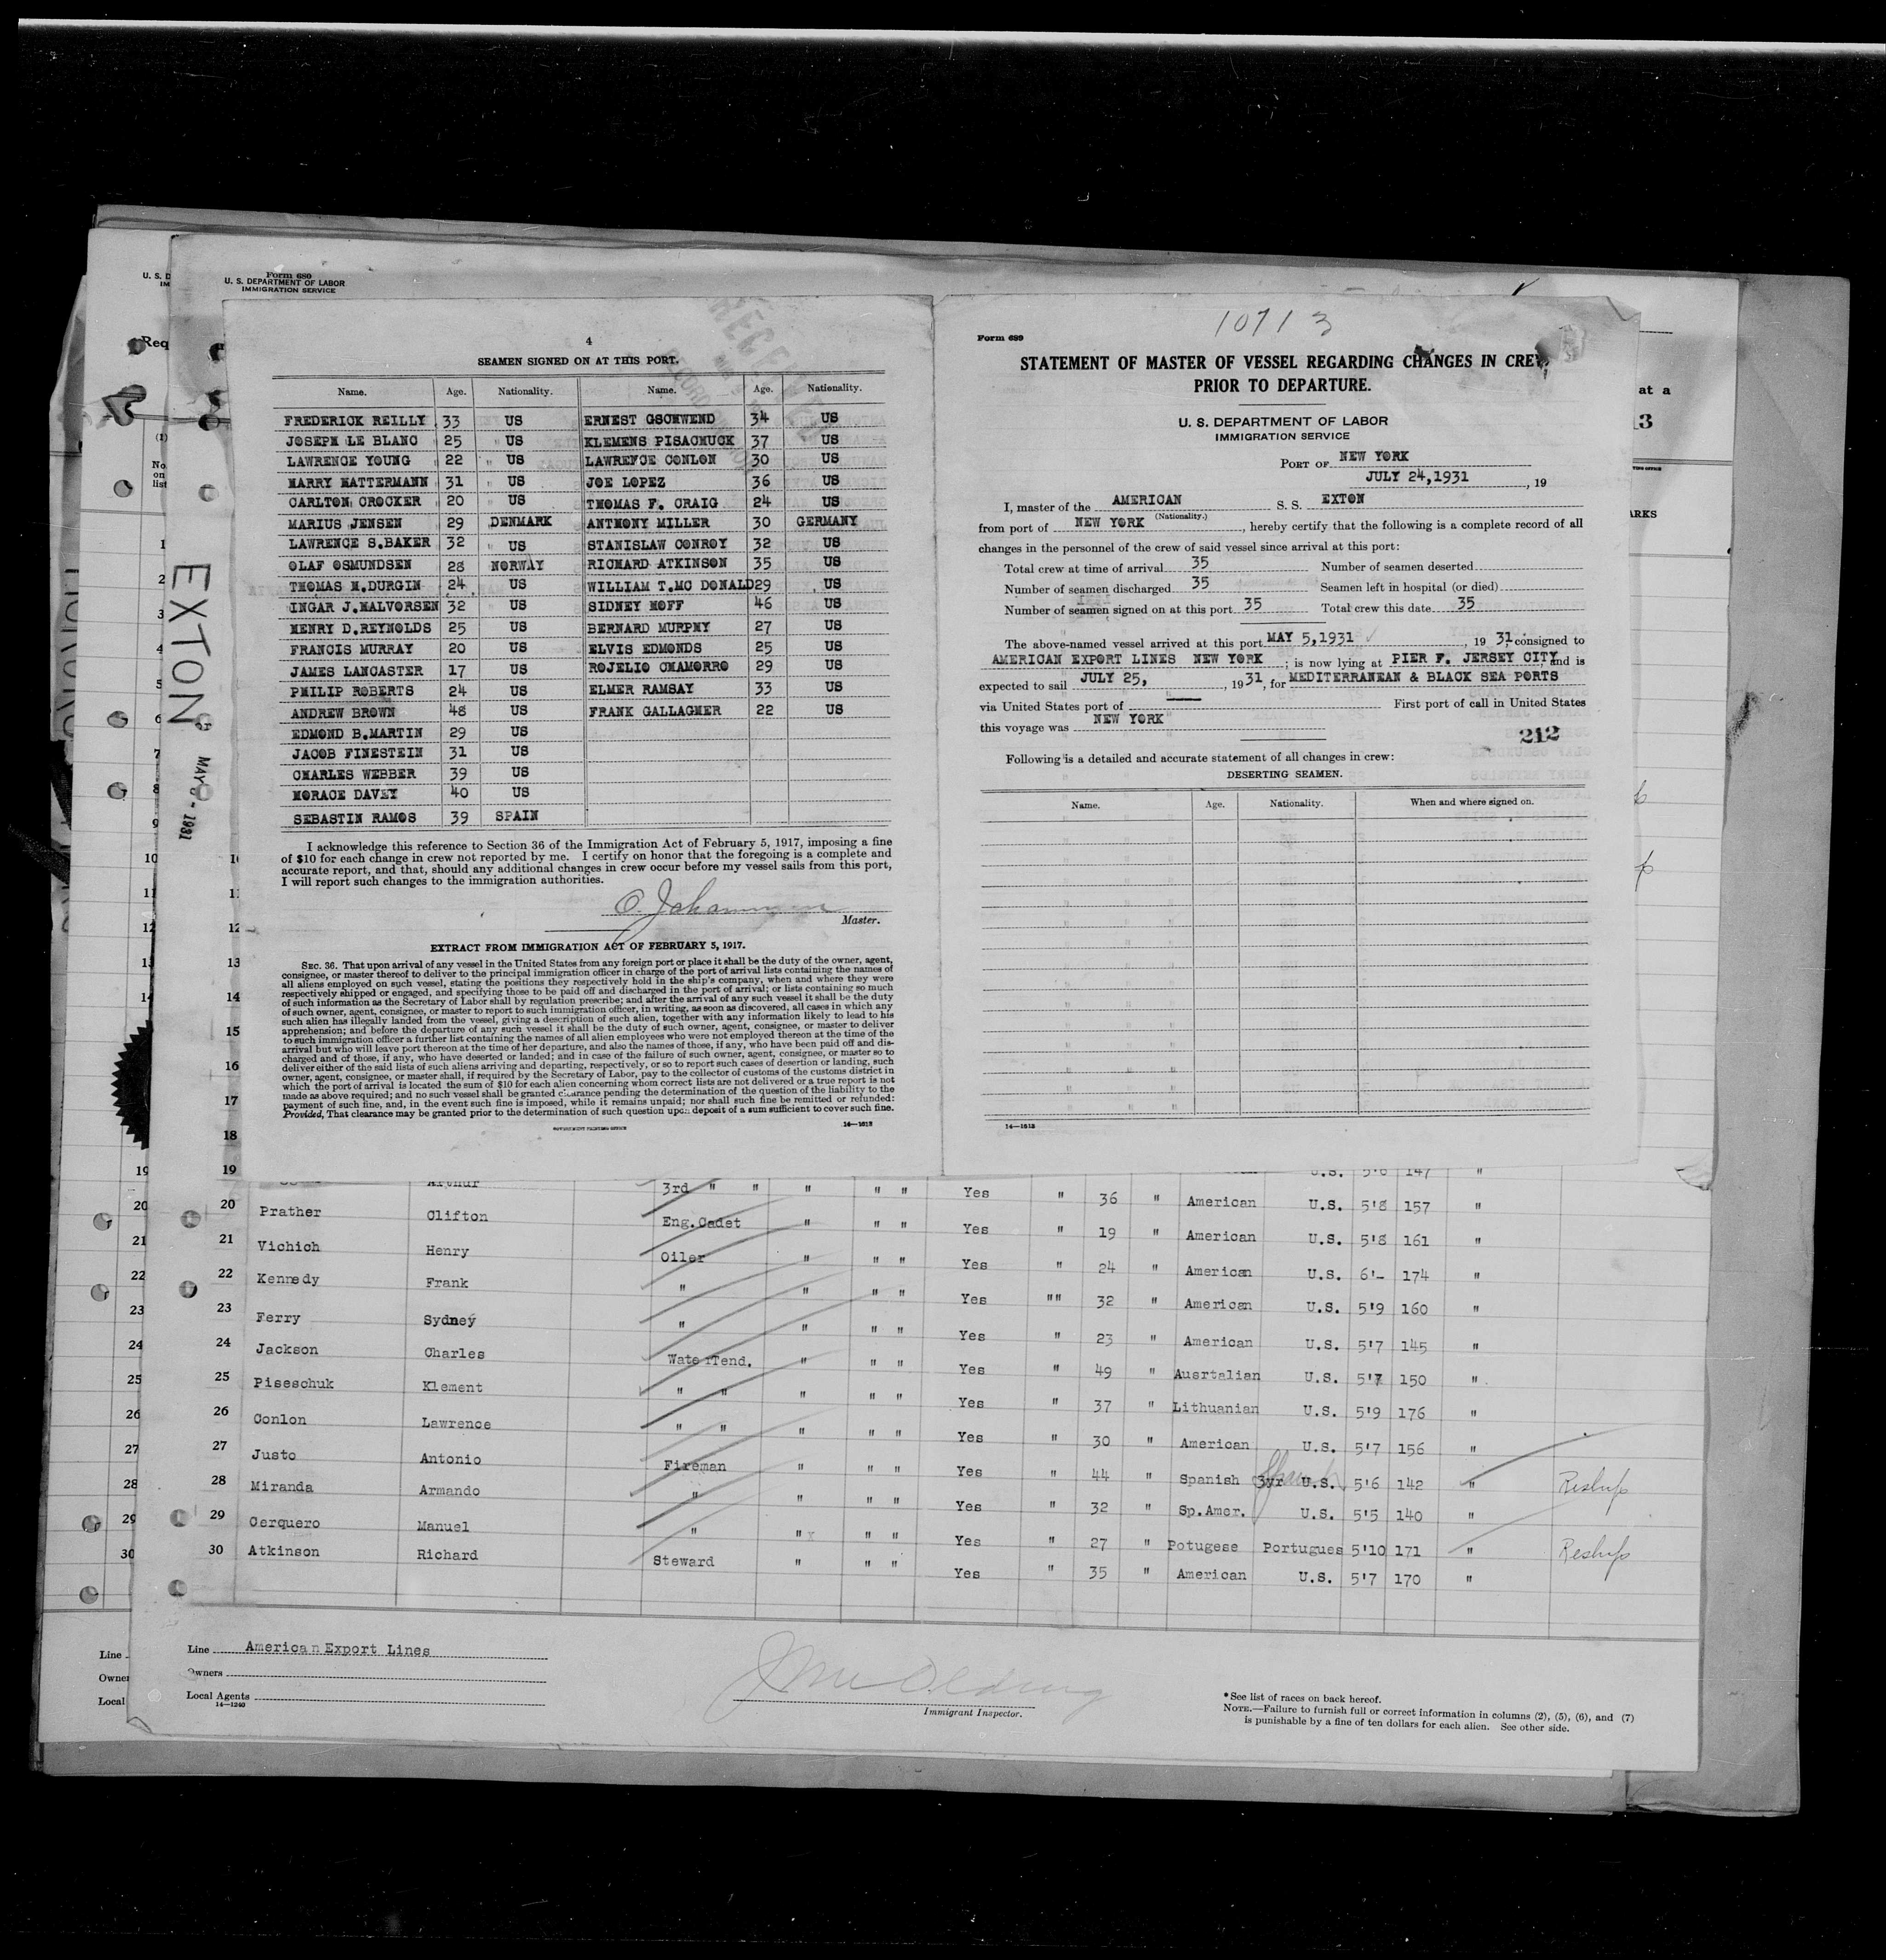 U. S. D
IM
Form 680
U. S. DEPARTMENT OF LABOR
IMMIGRATION SERVICE
Req
(1)
No.
on
list
EXTON
MAY 6 - 1931
4
SEAMEN SIGNED ON AT THIS PORT.
Name. Age. Nationality. Name. Age. Nationality.
FREDERICK REILLY 33 US ERNEST GSCHWEND 34 US
JOSEPH LE BLANC 25 " US KLEMENS PISACHUCK 37 US
LAWRENCE YOUNG 22 " US LAWRENCE CONLON 30 US
HARRY HATTERMANN 31 " US JOE LOPEZ 36 US
CARLTON CROCKER 20 " US THOMAS F. CRAIG 24 US
MARIUS JENSEN 29 DENMARK ANTHONY MILLER 30 GERMANY
LAWRENCE S.BAKER 32 " US STANISLAW CONROY 32 US
OLAF OSMUNDSEN 28 NORWAY RICHARD ATKINSON 35 US
THOMAS H.DURGIN 24 US WILLIAM T.MC DONALD 29 US
INGAR J.HALVORSEN 32 US SIDNEY HOFF 46 US
HENRY D.REYNOLDS 25 US BERNARD MURPHY 27 US
FRANCIS MURRAY 20 US ELVIS EDMONDS 25 US
JAMES LANCASTER 17 US ROJELIO CHAMORRO 29 US
PHILIP ROBERTS 24 US ELMER RAMSAY 33 US
ANDREW BROWN 48 US FRANK GALLAGHER 22 US
EDMOND B.MARTIN 29 US
JACOB FINESTEIN 31 US
CHARLES WEBBER 39 US
HORACE DAVEY 40 US
SEBASTIN RAMOS 39 SPAIN
I acknowledge this reference to Section 36 of the Immigration Act of February 5, 1917, imposing a fine
of $10 for each change in crew not reported by me. I certify on honor that the foregoing is a complete and
accurate report, and that, should any additional changes in crew occur before my vessel sails from this port,
I will report such changes to the immigration authorities.
Master.
EXTRACT FROM IMMIGRATION ACT OF FEBRUARY 5, 1917.
SEC. 36. That upon arrival of any vessel in the United States from any foreign port or place it shall be the duty of the owner, agent,
consignee, or master thereof to deliver to the principal immigration officer in charge of the port of arrival lists containing the names of
all aliens employed on such vessel, stating the positions they respectively hold in the ship's company, when and where they were
respectively shipped or engaged, and specifying those to be paid off and discharged in the port of arrival; or lists containing so much
of such information as the Secretary of Labor shall by regulation prescribe; and after the arrival of any such vessel it shall be the duty
of such owner, agent, consignee, or master to report to such immigration officer, in writing, as soon as discovered, all cases in which any
such alien has illegally landed from the vessel, giving a description of such alien, together with any information likely to lead to his
apprehension; and before the departure of any such vessel it shall be the duty of such owner, agent, consignee, or master to deliver
to such immigration officer a further list containing the names of all alien employees who were not employed thereon at the time of the
arrival but who will leave port thereon at the time of her departure, and also the names of those, if any, who have been paid off and dis-
charged and of those, if any, who have deserted or landed; and in case of the failure of such owner, agent, consignee, or master so to
deliver either of the said lists of such aliens arriving and departing, respectively, or so to report such cases of desertion or landing, such
owner, agent, consignee, or master shall, if required by the Secretary of Labor, pay to the collector of customs of the customs district in
which the port of arrival is located the sum of $10 for each alien concerning whom correct lists are not delivered or a true report is not
made as above required; and no such vessel shall be granted clearance pending the determination of the question of the liability to the
payment of such fine, and, in the event such fine is imposed, while it remains unpaid; nor shall such fine be remitted or refunded:
Provided, That clearance may be granted prior to the determination of such question upon deposit of a sum sufficient to cover such fine.
GOVERNMENT PRINTING OFFICE 14—1613
10713
Form 689
STATEMENT OF MASTER OF VESSEL REGARDING CHANGES IN CREW
PRIOR TO DEPARTURE.
U. S. DEPARTMENT OF LABOR
IMMIGRATION SERVICE
PORT OF NEW YORK
JULY 24,1931, 19
I, master of the AMERICAN S. S. EXTON
(Nationality.)
from port of NEW YORK, hereby certify that the following is a complete record of all
changes in the personnel of the crew of said vessel since arrival at this port:
Total crew at time of arrival 35 Number of seamen deserted
Number of seamen discharged 35 Seamen left in hospital (or died)
Number of seamen signed on at this port 35 Total crew this date 35
The above-named vessel arrived at this port MAY 5,1931, 19 31; consigned to
AMERICAN EXPORT LINES NEW YORK; is now lying at PIER F. JERSEY CITY and is
expected to sail JULY 25, , 1931, for MEDITERRANEAN & BLACK SEA PORTS
via United States port of First port of call in United States
this voyage was NEW YORK
212
Following is a detailed and accurate statement of all changes in crew:
DESERTING SEAMEN.
Name. Age. Nationality. When and where signed on.
14—1613
at a
13
ARKS
U.S. 5'6 147 "
Arthur 3rd " " " " " Yes " 36 " American U.S. 5'8 157 "
20 Prather Clifton Eng.Cadet " " " Yes " 19 " American U.S. 5'8 161 "
21 Vichich Henry Oiler " " " Yes " 24 " American U.S. 6'- 174 "
22 Kennedy Frank " " " " Yes "" 32 " American U.S. 5'9 160 "
23 Ferry Sydney " " " " Yes " 23 " American U.S. 5'7 145 "
24 Jackson Charles WaterTend. " " " Yes " 49 " Auertalian U.S. 5'7 150 "
25 Piseschuk Klement " " " " " Yes " 37 " Lithuanian U.S. 5'9 176 "
26 Conlon Lawrence " " " " " Yes " 30 " American U.S. 5'7 156 "
27 Justo Antonio Fireman " " " Yes " 44 " Spanish 3yr U.S. 5'6 142 " Reship
28 Miranda Armando " " " " Yes " 32 " Sp.Amer. U.S. 5'5 140 "
29 Cerquero Manuel " " x " " Yes " 27 " Potugese Portugues 5'10 171 " Reship
30 Atkinson Richard Steward " " " Yes " 35 " American U.S. 5'7 170 "
Line American Export Lines
Owners
Local Agents
14—1240
Immigrant Inspector.
*See list of races on back hereof.
NOTE.—Failure to furnish full or correct information in columns (2), (5), (6), and (7)
is punishable by a fine of ten dollars for each alien. See other side.
Line
Owner
Local